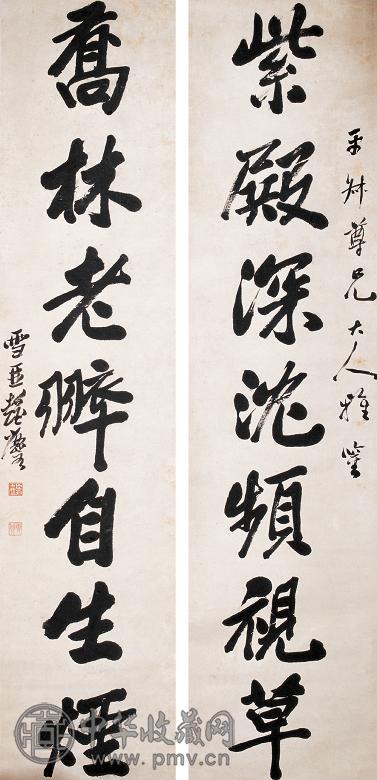 平叔尊兄大人雅鑒
紫殿深沈頻視草
喬林老翠自生煙
雪臣
中华收藏网
www.pmv.cn